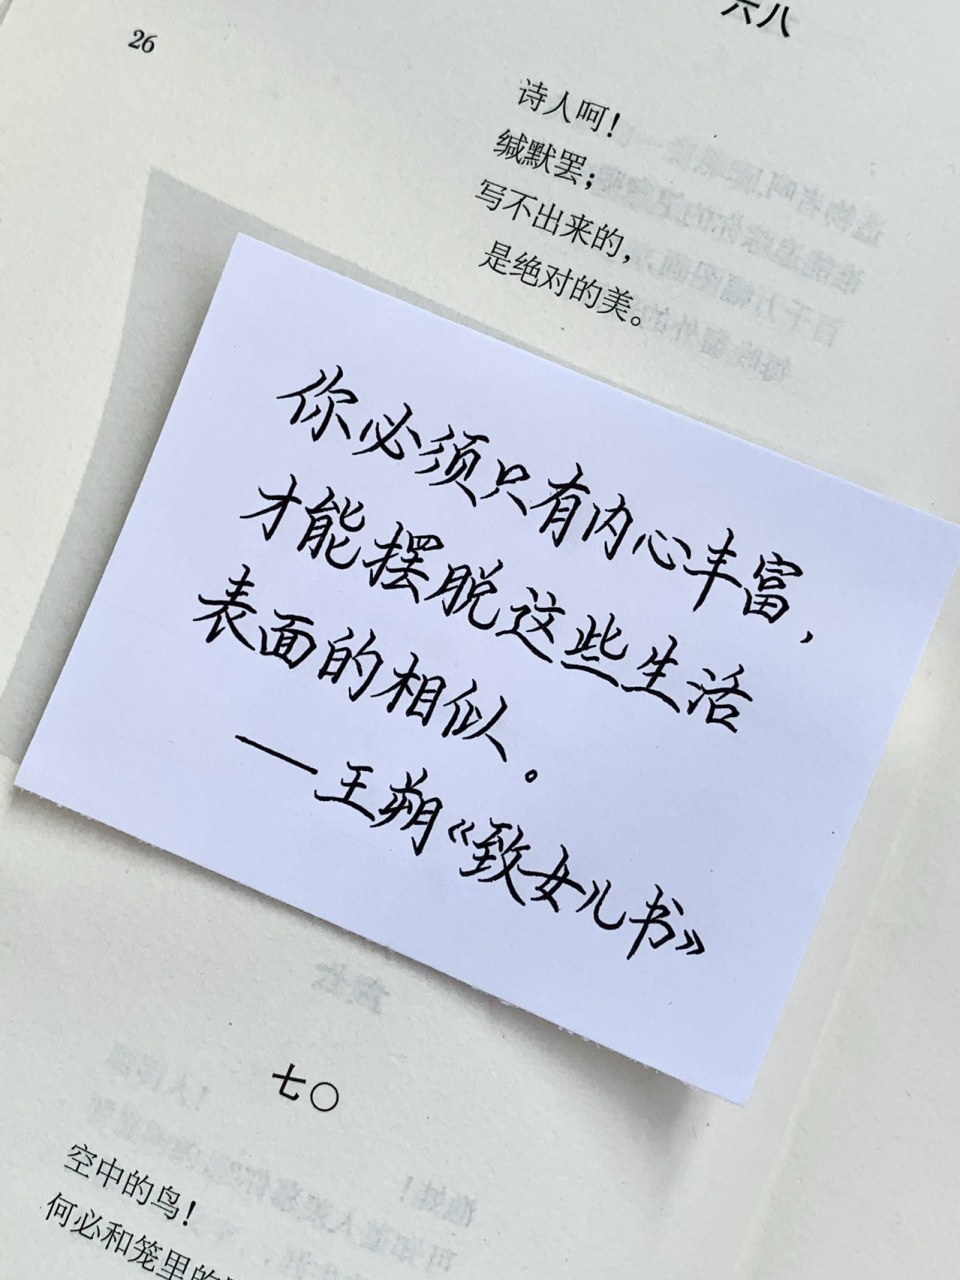 26
六八
诗人呵！
缄默罢；
写不出来的，
是绝对的美。
你必须只有内心丰富，
才能摆脱这些生活
表面的相似。
—王朔《致女儿书》
七〇
空中的鸟！
何必和笼里的